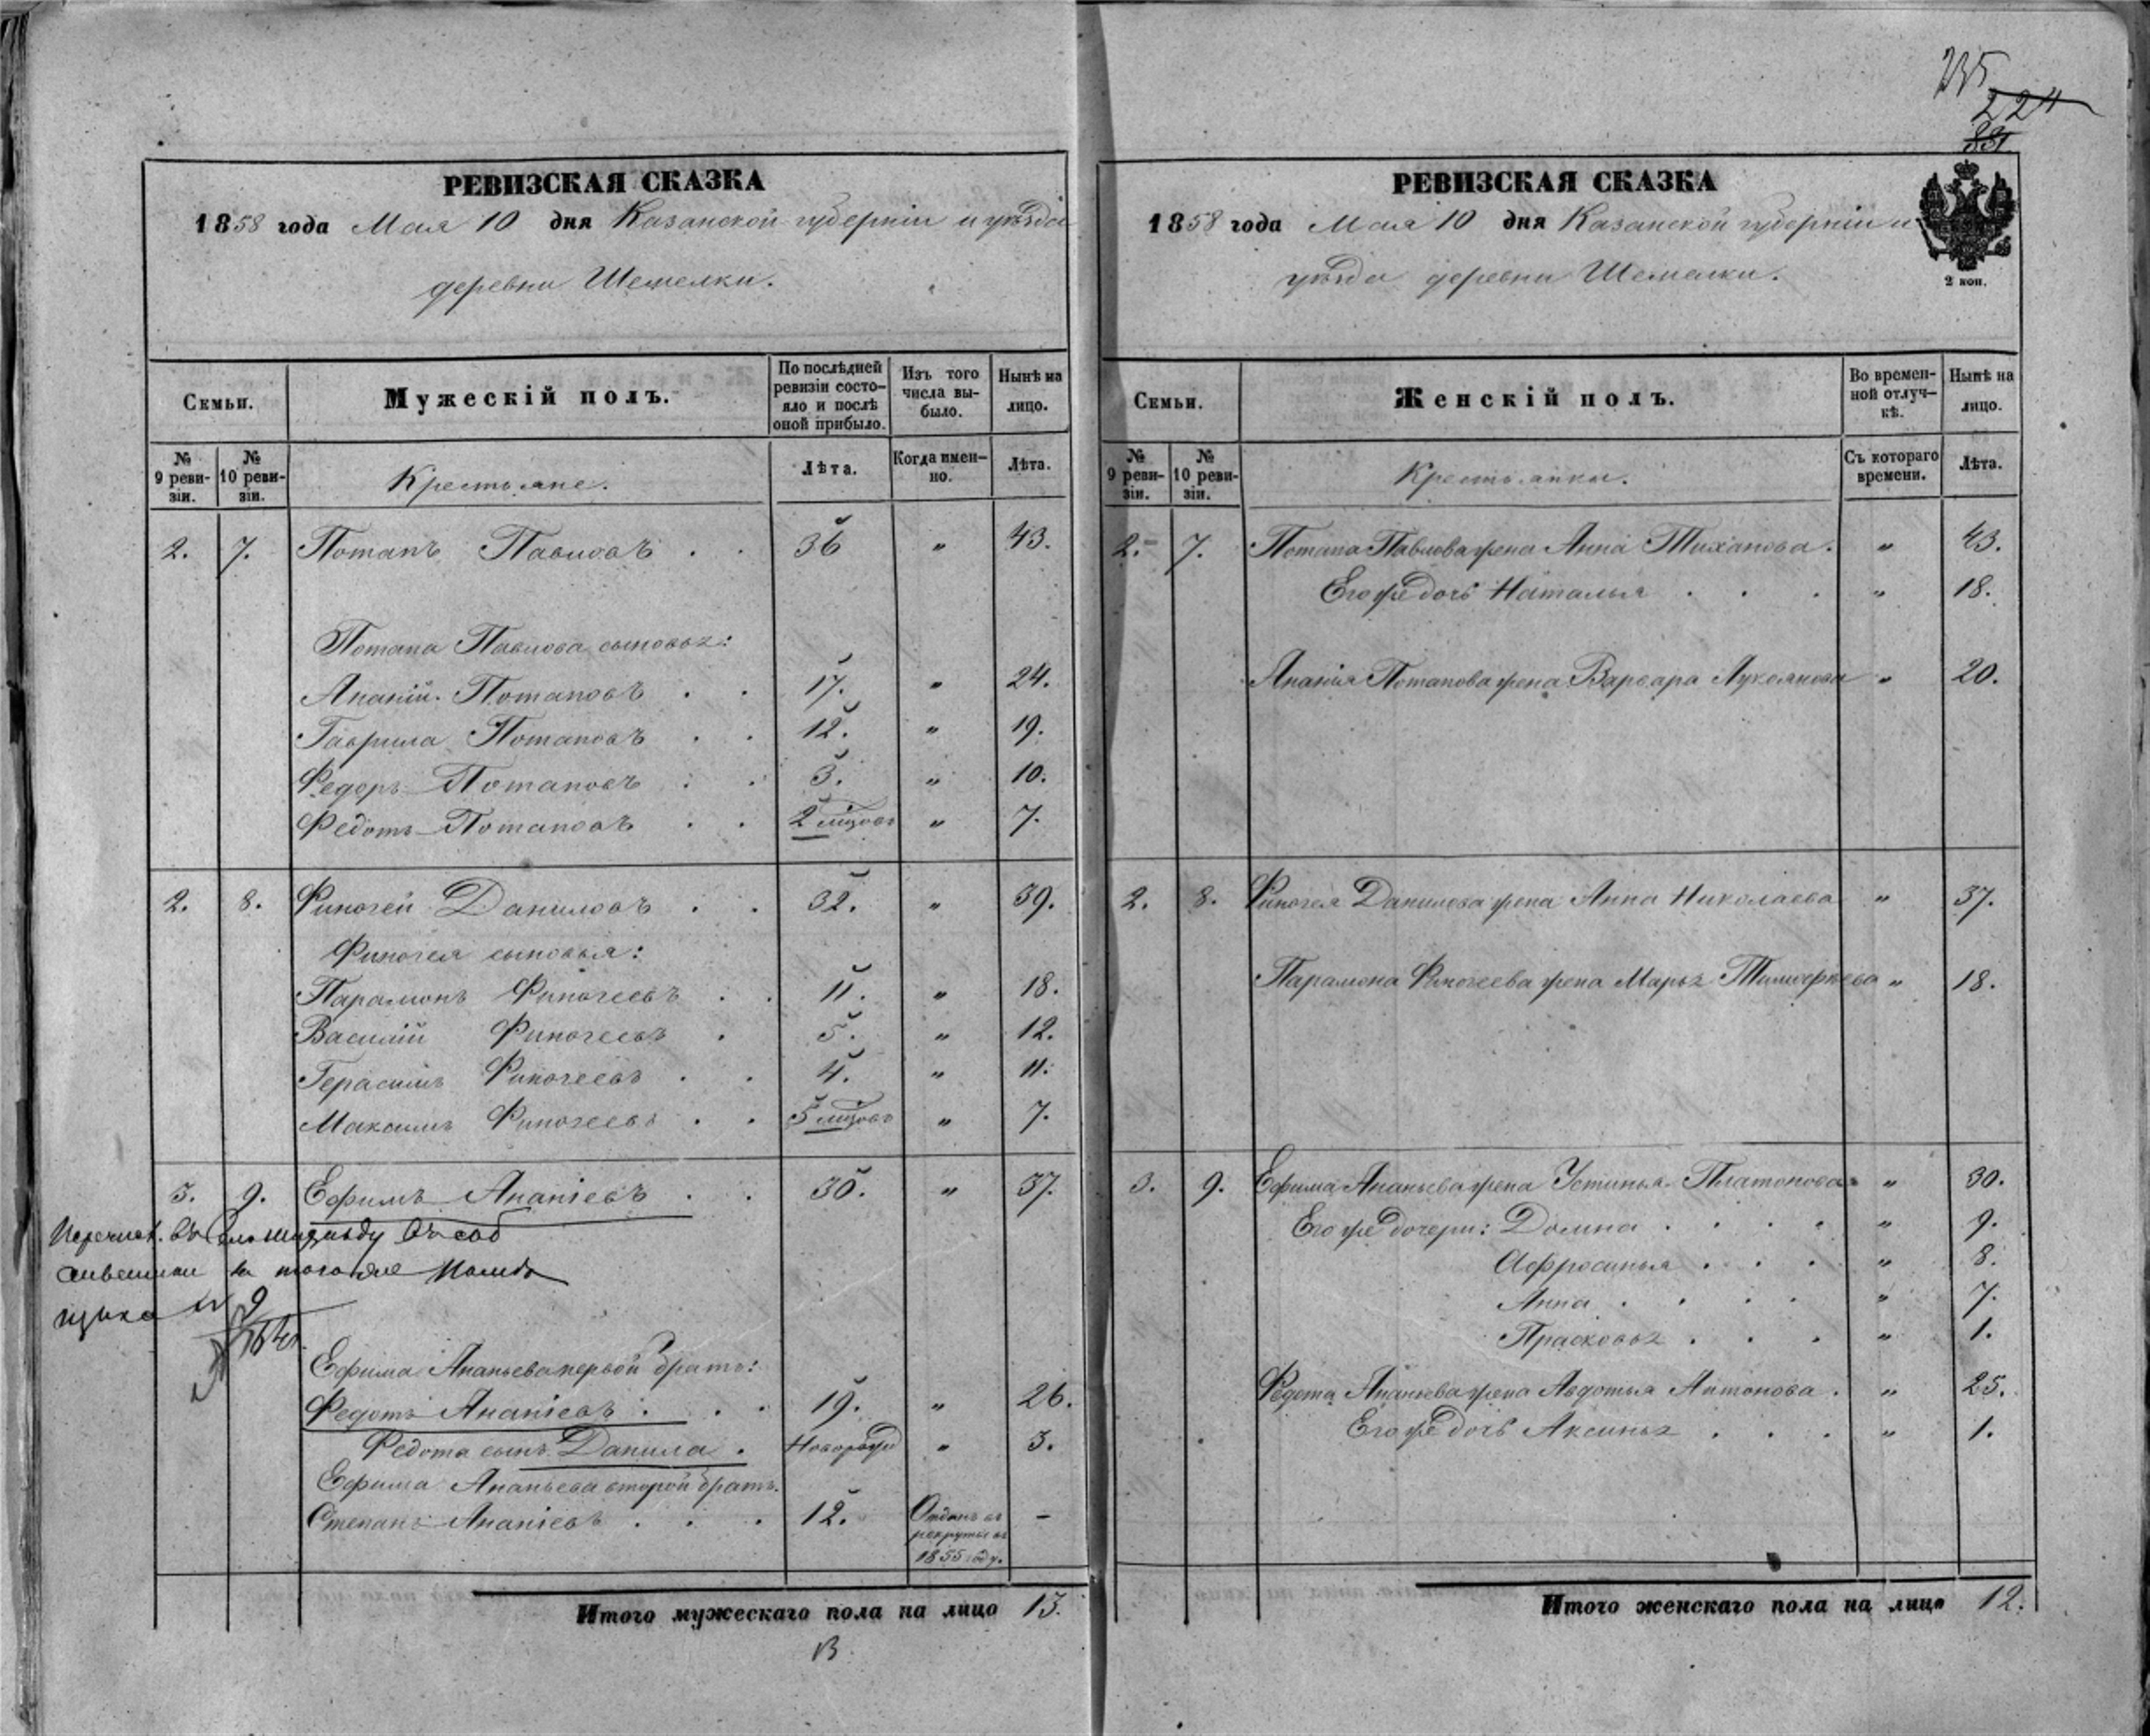 РЕВИЗСКАЯ СКАЗКА
1858 года Мая 10 дня Казанской губерніи и уѣзда
деревни Шемелки.
Семьи.
Мужескій полъ.
По послѣдней ревизіи состо-
яло и послѣ оной прибыло.
Изъ того числа вы-
было.
Нынѣ на лицо.
№ 9 реви-
зіи.
№ 10 реви-
зіи.
Крестьяне.
Лѣта.
Когда имен-
но.
Лѣта.
2. 7. Потапъ Павловъ . . 36 " 43.
Потапа Павлова сыновья:
Ананій Потаповъ . . 17. " 24.
Гаврила Потаповъ . . 12. " 19.
Федоръ Потаповъ . . 3. " 10.
Федотъ Потаповъ . . 2 мѣсяцовъ " 7.
2. 8. Финогей Даниловъ . . 32. " 39.
Финогея сыновья:
Парамонъ Финогеевъ . . 11. " 18.
Василій Финогеевъ . 5. " 12.
Герасимъ Финогеевъ . . 4. " 11.
Максимъ Финогеевъ . . 5 мѣсяцовъ " 7.
3. 9. Ефимъ Ананіевъ . . 30. " 37.
Ефима Ананьева первой братъ:
Федотъ Ананіевъ . . . 19. " 26.
Федота сынъ Данила . Новорожд " 3.
Ефима Ананьева второй братъ.
Степанъ Ананіевъ . . . 12. Отданъ въ рекруты въ 1855 году. –
Итого мужескаго пола на лицо 13.
235
224
РЕВИЗСКАЯ СКАЗКА
1858 года Мая 10 дня Казанской губерніи и
уѣзда деревни Шемелки.
2 коп.
Семьи.
Женскій полъ.
Во времен-
ной отлуч-
кѣ.
Нынѣ на лицо.
№ 9 реви-
зіи.
№ 10 реви-
зіи.
Крестьянки.
Съ котораго времени.
Лѣта.
2. 7. Потапа Павлова жена Анна Тиханова. " 43.
Его же дочь Наталья . . . " 18.
Ананія Потапова жена Варвара Лукоянова " 20.
2. 8. Финогея Данилова жена Анна Николаева " 37.
Парамона Финогеева жена Марья " 18.
3. 9. Ефима Ананьева жена Устинья Платонова " 30.
Его же дочери: Домна . . . . " 9.
Афросинья . . . " 8.
Анна . . . . " 7.
Прасковья . . . " 1.
Федота Ананьева жена Авдотья Антонова . " 25.
Его же дочь Аксинья . . . " 1.
Итого женскаго пола на лицо 12.